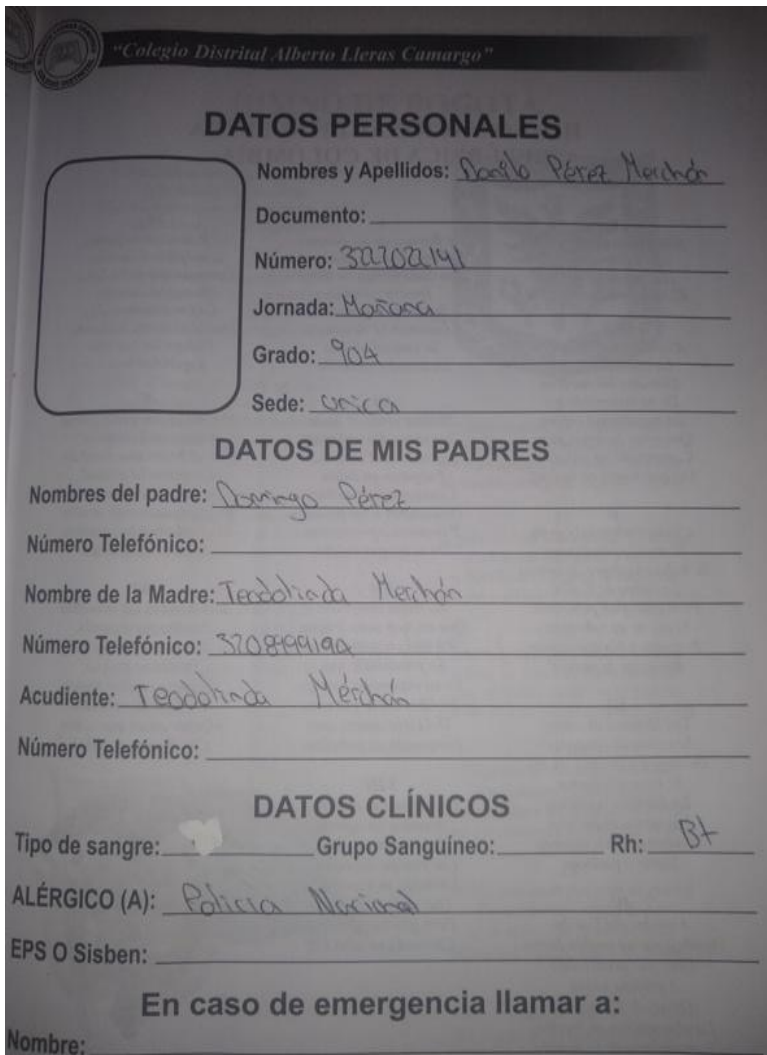 "Colegio Distrital Alberto Lleras Camargo"
DATOS PERSONALES
Nombres y Apellidos: Danilo Pérez Merchán
Documento:
Número:
Jornada: Mañana
Grado: 904
Sede: Unica
DATOS DE MIS PADRES
Nombres del padre: Domingo Pérez
Número Telefónico:
Nombre de la Madre: Teodolinda Merchán
Número Telefónico:
Acudiente: Teodolinda Mérchán
Número Telefónico:
DATOS CLÍNICOS
Tipo de sangre: Grupo Sanguíneo: Rh: B+
ALÉRGICO (A): Policia Nacional
EPS O Sisben:
En caso de emergencia llamar a:
Nombre: